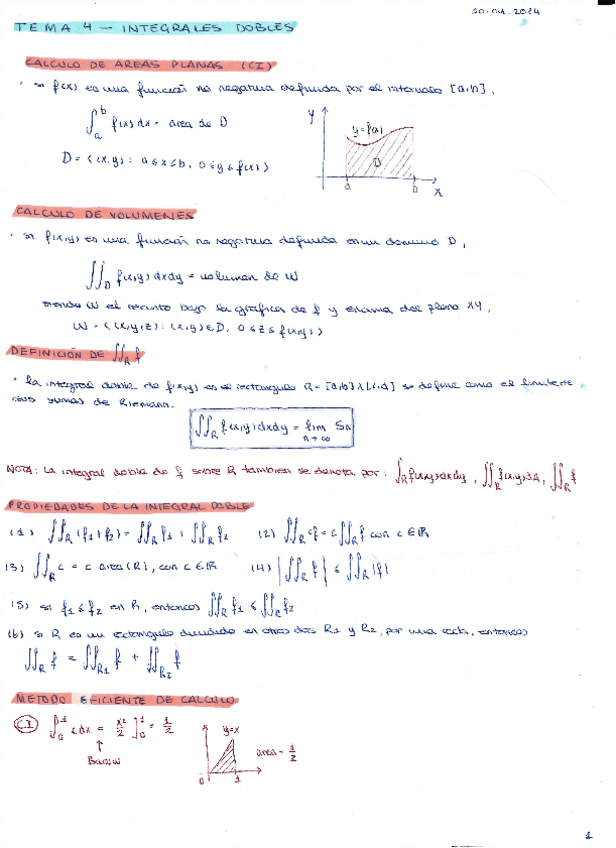 30.04.2024
TEMA 4 — INTEGRALES DOBLES
CALCULO DE AREAS PLANAS (CI)
· si f(x) es una función no negativa definida por el intervalo [a,b],
∫_a^b f(x) dx = área de D
D = {(x,y): a ≤ x ≤ b, 0 ≤ y ≤ f(x)}
y
y = f(x)
D
a b x
CALCULO DE VOLUMENES
· si f(x,y) es una función no negativa definida en un dominio D,
∬_D f(x,y) dxdy = volumen de W
siendo W el recinto bajo la gráfica de f y encima del plano XY,
W = {(x,y,z): (x,y) ∈ D, 0 ≤ z ≤ f(x,y)}
DEFINICIÓN DE ∬_R f
· la integral doble de f(x,y) es el rectángulo R = [a,b] x [c,d] se define como el límite de
sus sumas de Riemann.
∬_R f(x,y) dxdy = lim_{n→∞} Sn
NOTA: La integral doble de f sobre R también se denota por: ∫_R f(x,y) dxdy, ∬_R f(x,y) dA, ∬_R f
PROPIEDADES DE LA INTEGRAL DOBLE
(1) ∬_R (f1 + f2) = ∬_R f1 + ∬_R f2 (2) ∬_R cf = c ∬_R f con c ∈ ℝ
(3) ∬_R c = c area (R), con c ∈ ℝ (4) |∬_R f| ≤ ∬_R |f|
(5) si f1 ≤ f2 en R, entonces ∬_R f1 ≤ ∬_R f2
(6) si R es un rectángulo dividido en otros dos R1 y R2, por una recta, entonces
∬_R f = ∬_R1 f + ∬_R2 f
METODO EFICIENTE DE CALCULO
C.I ∫_0^1 x dx = x²/2 ]_0^1 = 1/2
↑
Barrow
y=x
area = 1/2
0 1
1